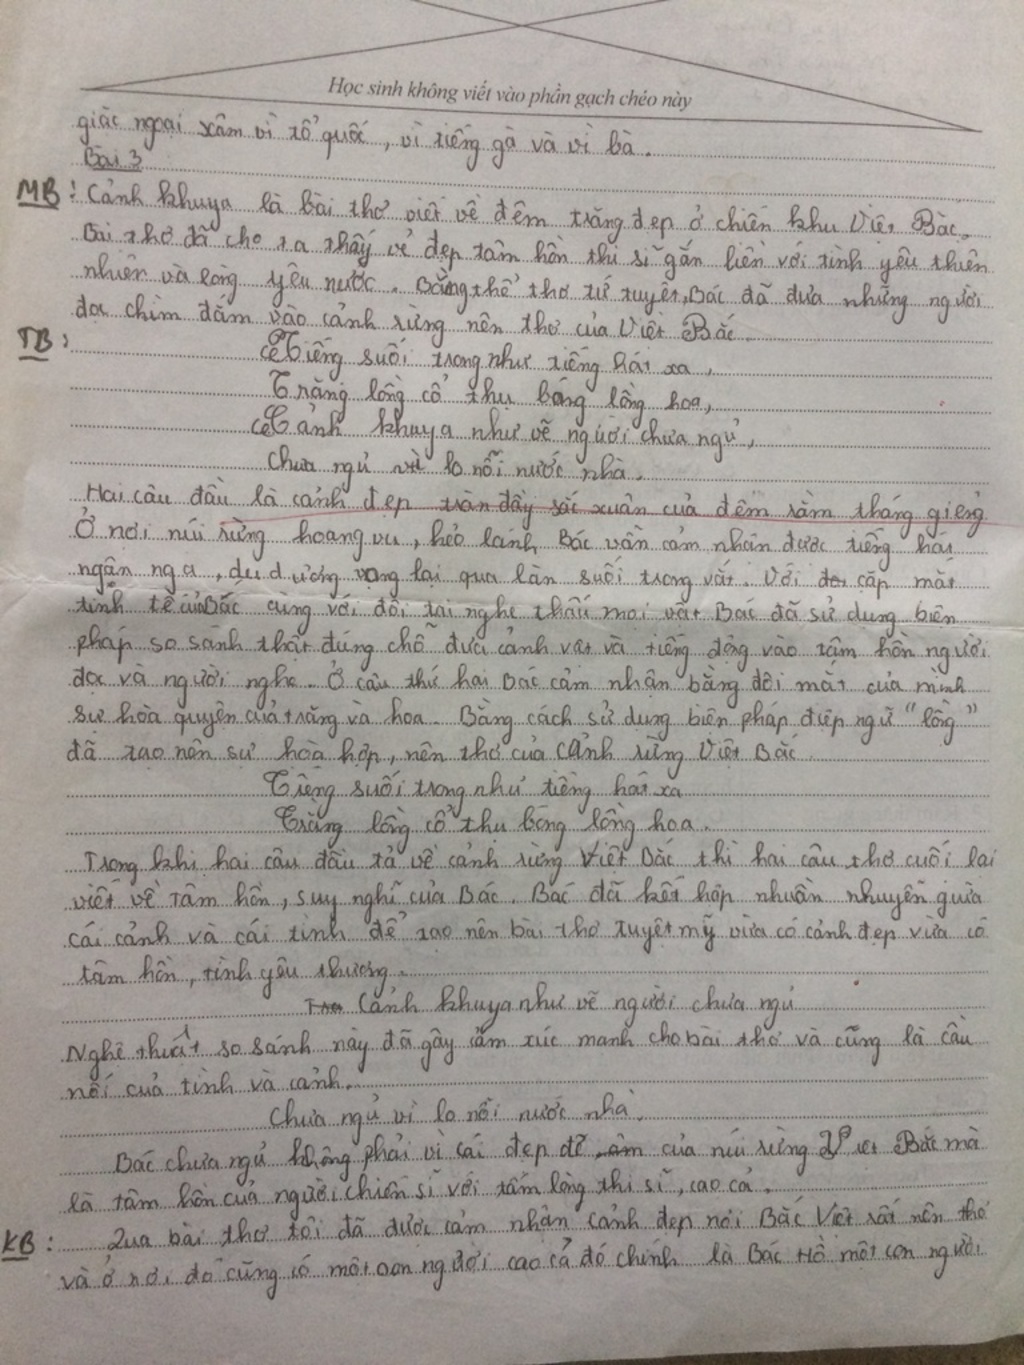 Học sinh không viết vào phần gạch chéo này
giặc ngoại xâm vì tổ quốc, vì tiếng gà và vì bà.
Bài 3
MB: Cảnh khuya là bài thơ viết về đêm trăng đẹp ở chiến khu Việt Bắc.
Bài thơ đã cho ta thấy vẻ đẹp tâm hồn thi sĩ gắn liền với tình yêu thiên
nhiên và lòng yêu nước. Bằng thể thơ tứ tuyệt, Bác đã đưa những người
đọc chìm đắm vào cảnh rừng nên thơ của Việt Bắc.
TB:
"Tiếng suối trong như tiếng hát xa,
Trăng lồng cổ thụ bóng lồng hoa,
Cảnh khuya như vẽ người chưa ngủ,
Chưa ngủ vì lo nỗi nước nhà.
Hai câu đầu là cảnh đẹp tràn đầy sắc xuân của đêm rằm tháng giêng
Ở nơi núi rừng hoang vu, hẻo lánh Bác vẫn cảm nhận được tiếng hát
ngân nga, du dương vọng lại qua làn suối trong vắt. Với cặp mắt
tinh tế của Bác cùng với đôi tai nghe thấu mọi vật Bác đã sử dụng biện
pháp so sánh thật đúng chỗ đưa cảnh vật và tiếng động vào tâm hồn người
đọc và người nghe. Ở câu thứ hai Bác cảm nhận bằng đôi mắt của mình
sự hòa quyện của trăng và hoa. Bằng cách sử dụng biện pháp điệp ngữ "lồng"
đã tạo nên sự hòa hợp, nên thơ của cảnh rừng Việt Bắc.
Tiếng suối trong như tiếng hát xa
Trăng lồng cổ thụ bóng lồng hoa.
Trong khi hai câu đầu tả về cảnh rừng Việt Bắc thì hai câu thơ cuối lại
viết về tâm hồn, suy nghĩ của Bác. Bác đã kết hợp nhuần nhuyễn giữa
cái cảnh và cái tình để tạo nên bài thơ tuyệt mỹ vừa có cảnh đẹp vừa có
tâm hồn, tình yêu thương.
Cảnh khuya như vẽ người chưa ngủ
Nghệ thuật so sánh này đã gây cảm xúc mạnh cho bài thơ và cũng là cầu
nối của tình và cảnh.
Chưa ngủ vì lo nỗi nước nhà.
Bác chưa ngủ không phải vì cái đẹp của núi rừng Việt Bắc mà
là tâm hồn của người chiến sĩ với tấm lòng thi sĩ, cao cả.
KB: Qua bài thơ tôi đã được cảm nhận cảnh đẹp nơi Bắc Việt rất nên thơ
và ở nơi đó cũng có một con người cao cả đó chính là Bác Hồ một con người